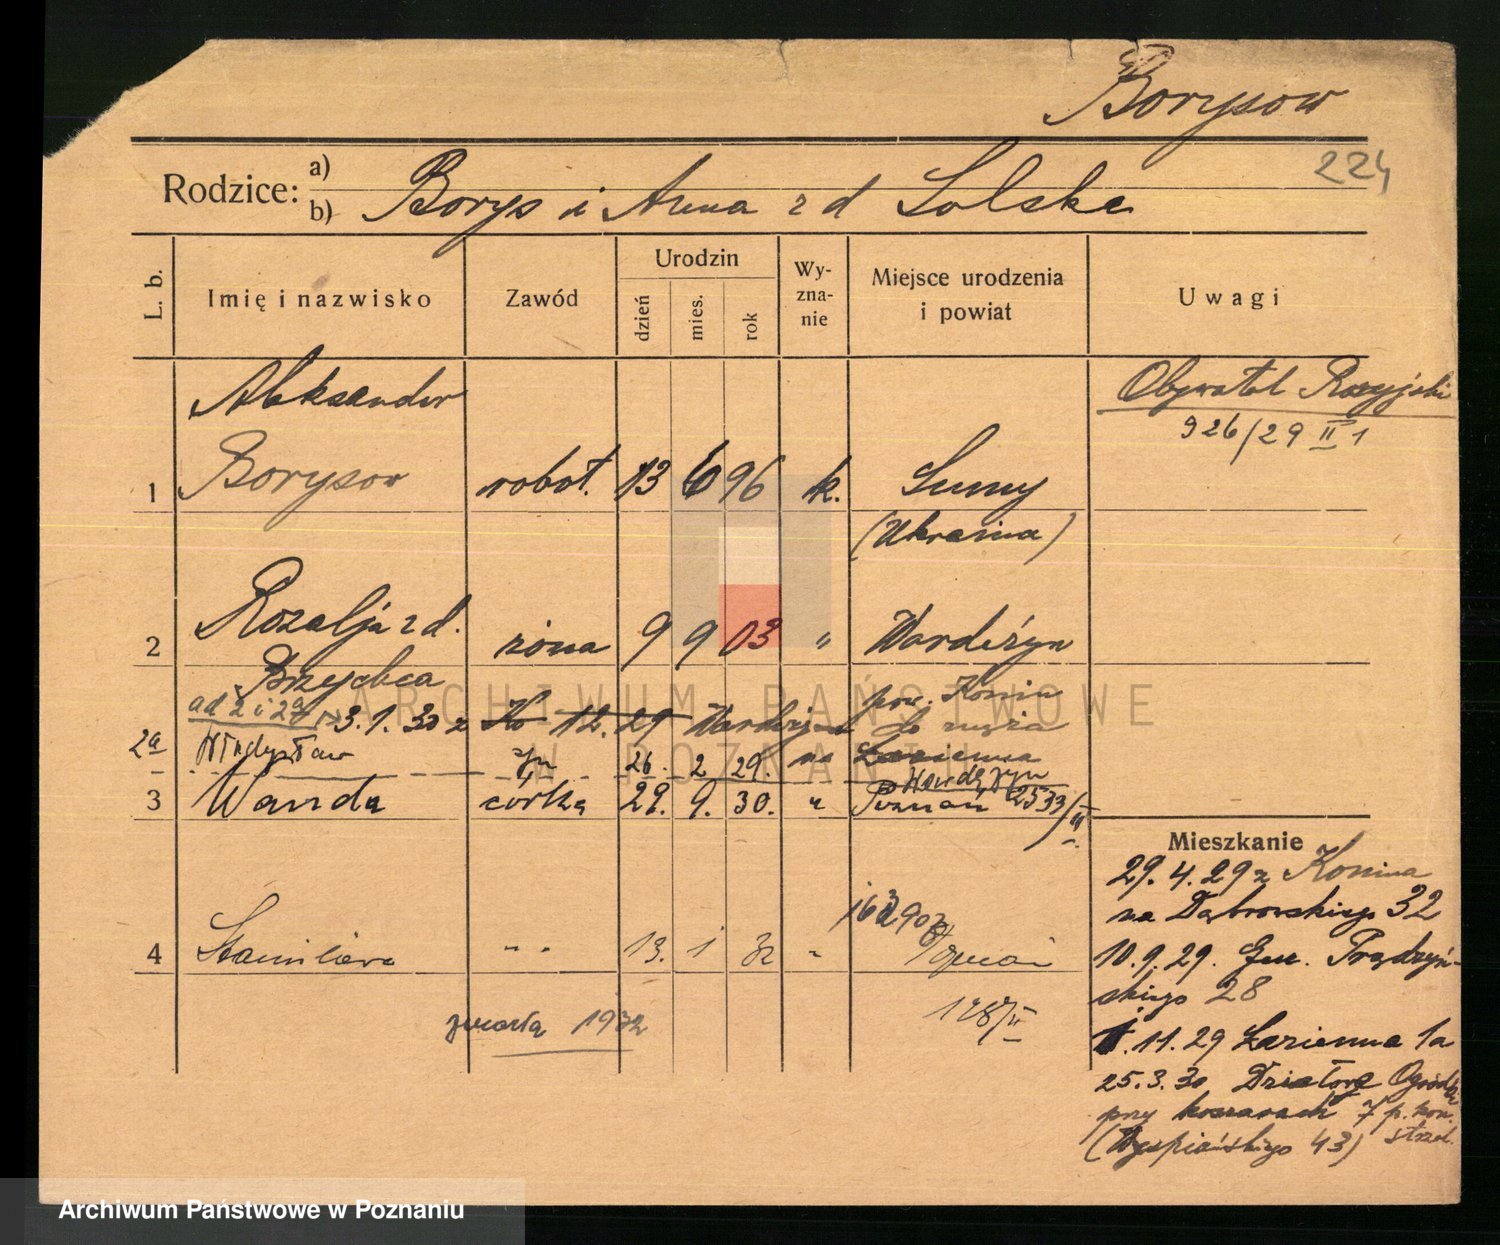 Borysow
224
Rodzice: a) b) Borys i Anna z d Solska
L. b.
Imię i nazwisko
Zawód
Urodzin
dzień
mies.
rok
Wy-
zna-
nie
Miejsce urodzenia
i powiat
Uwagi
Aleksander
Obywatel Rosyjski
926/29 II 1
1 Borysow robot. 13 6 96 k. Sumy
(Ukraina)
2 Rozalja z d. żona 9 9 03 " Wardężyn
Brzychca
pow. Konin
ad 2 i 2a 3.1.30 z Ko 12. 29 Wardężyn do męża
2a Władysław syn 26. 2 29. na Łazienna
Wardężyn
3 Wanda córka 29. 9. 30. " Poznań 2533/II
Mieszkanie
29.4.29 z Konina
na Dąbrowskiego 32
4 Stanisława " " 13. 1 32 "
10.9.29. Gen. Prądzyń-
skiego 28
zmarła 1932
128/II
1.11.29 Łazienna 1a
25.3.30 Działowe Ogródki
przy koszarach 7 p. kon.
strzel.
(Wyspiańskiego 43)
ARCHIWUM PAŃSTWOWE
W POZNANIU
Archiwum Państwowe w Poznaniu